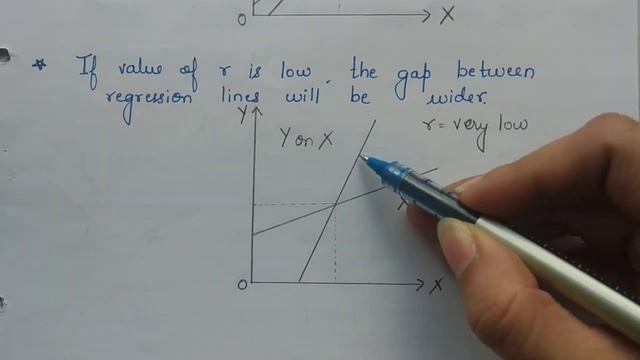 O X
* If value of r is low, the gap between
regression lines will be wider.
Y
Y on X
r = very low
X
O X